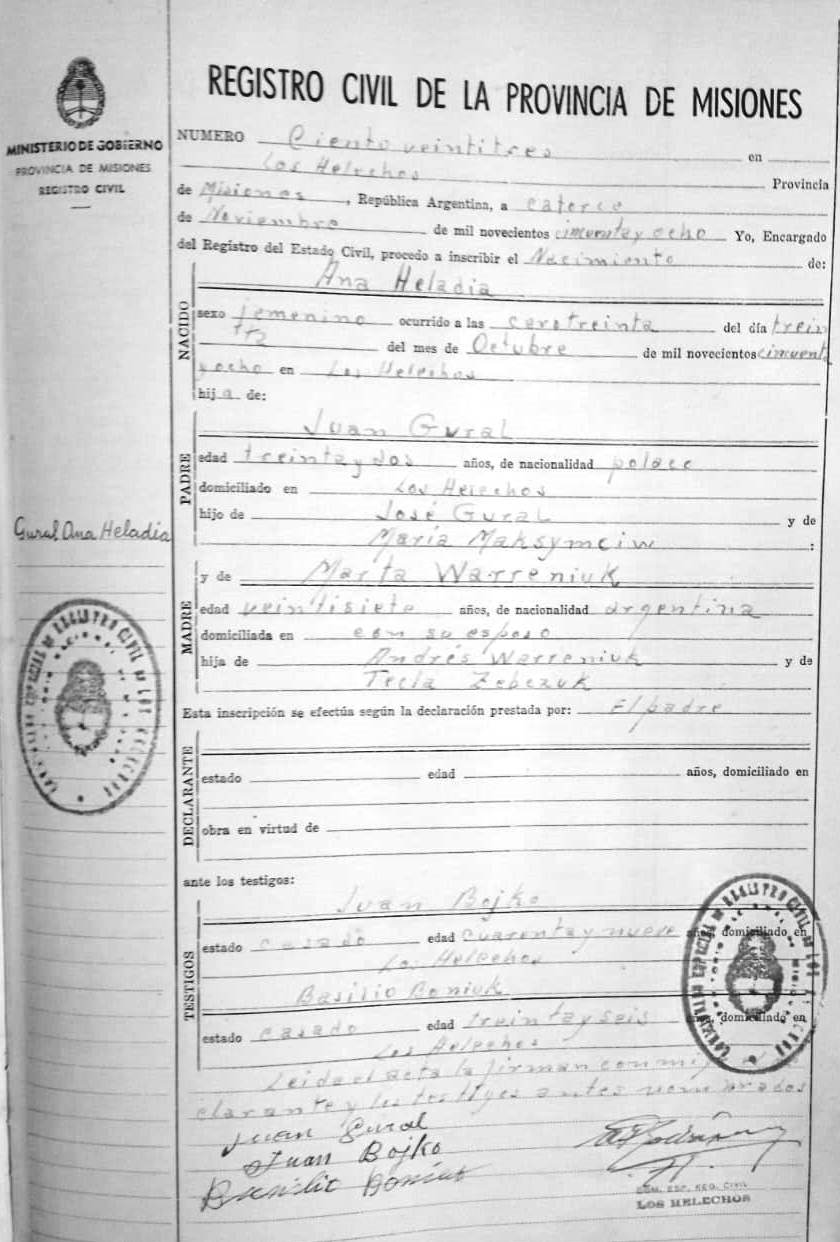 REGISTRO CIVIL DE LA PROVINCIA DE MISIONES
MINISTERIO DE GOBIERNO
PROVINCIA DE MISIONES
REGISTRO CIVIL
NUMERO Ciento veintitres en
Los Helechos Provincia
de Misiones, República Argentina, a catorce
de Noviembre de mil novecientos cincuenta y ocho Yo, Encargado
del Registro del Estado Civil, procedo a inscribir el Nacimiento de:
NACIDO
Ana Heladia
sexo femenino ocurrido a las cero treinta del día trein
ta del mes de Octubre de mil novecientos cincuenta
y ocho en Los Helechos
hija de:
PADRE
Juan Gural
edad treinta y dos años, de nacionalidad polaco
domiciliado en Los Helechos
hijo de José Gural y de
María Maksymciw :
Gural Ana Heladia
MADRE
y de Marta Warreniuk
edad veintisiete años, de nacionalidad argentina
domiciliada en con su esposo
hija de Andrés Warreniuk y de
Tecla Zebczuk
Esta inscripción se efectúa según la declaración prestada por: El padre
DECLARANTE
estado edad años, domiciliado en
obra en virtud de
ante los testigos:
TESTIGOS
Juan Bojko
estado casado edad cuarenta y nueve años, domiciliado en
Los Helechos
Basilio Boniuk
estado casado edad treinta y seis años, domiciliado en
Los Helechos
Leida el acta la firman conmigo
clarante y los testigos antes nombrados
Juan Gural
Juan Bojko
Basilio Boniuk
COM. ESP. REG. CIVIL
LOS HELECHOS